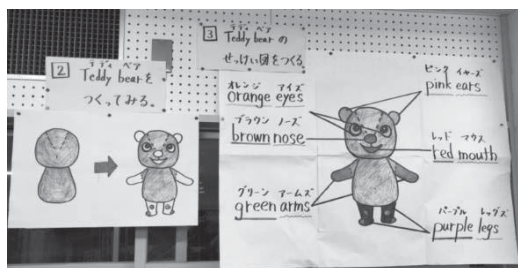 2 テディ ベア
Teddy bearを
つくってみる。
3 テディ ベア
Teddy bearの
せっけい図をつくる。
オレンジ アイズ
orange eyes
ブラウン ノーズ
brown nose
グリーン アームズ
green arms
ピンク イヤーズ
pink ears
レッド マウス
red mouth
パープル レッグズ
purple legs